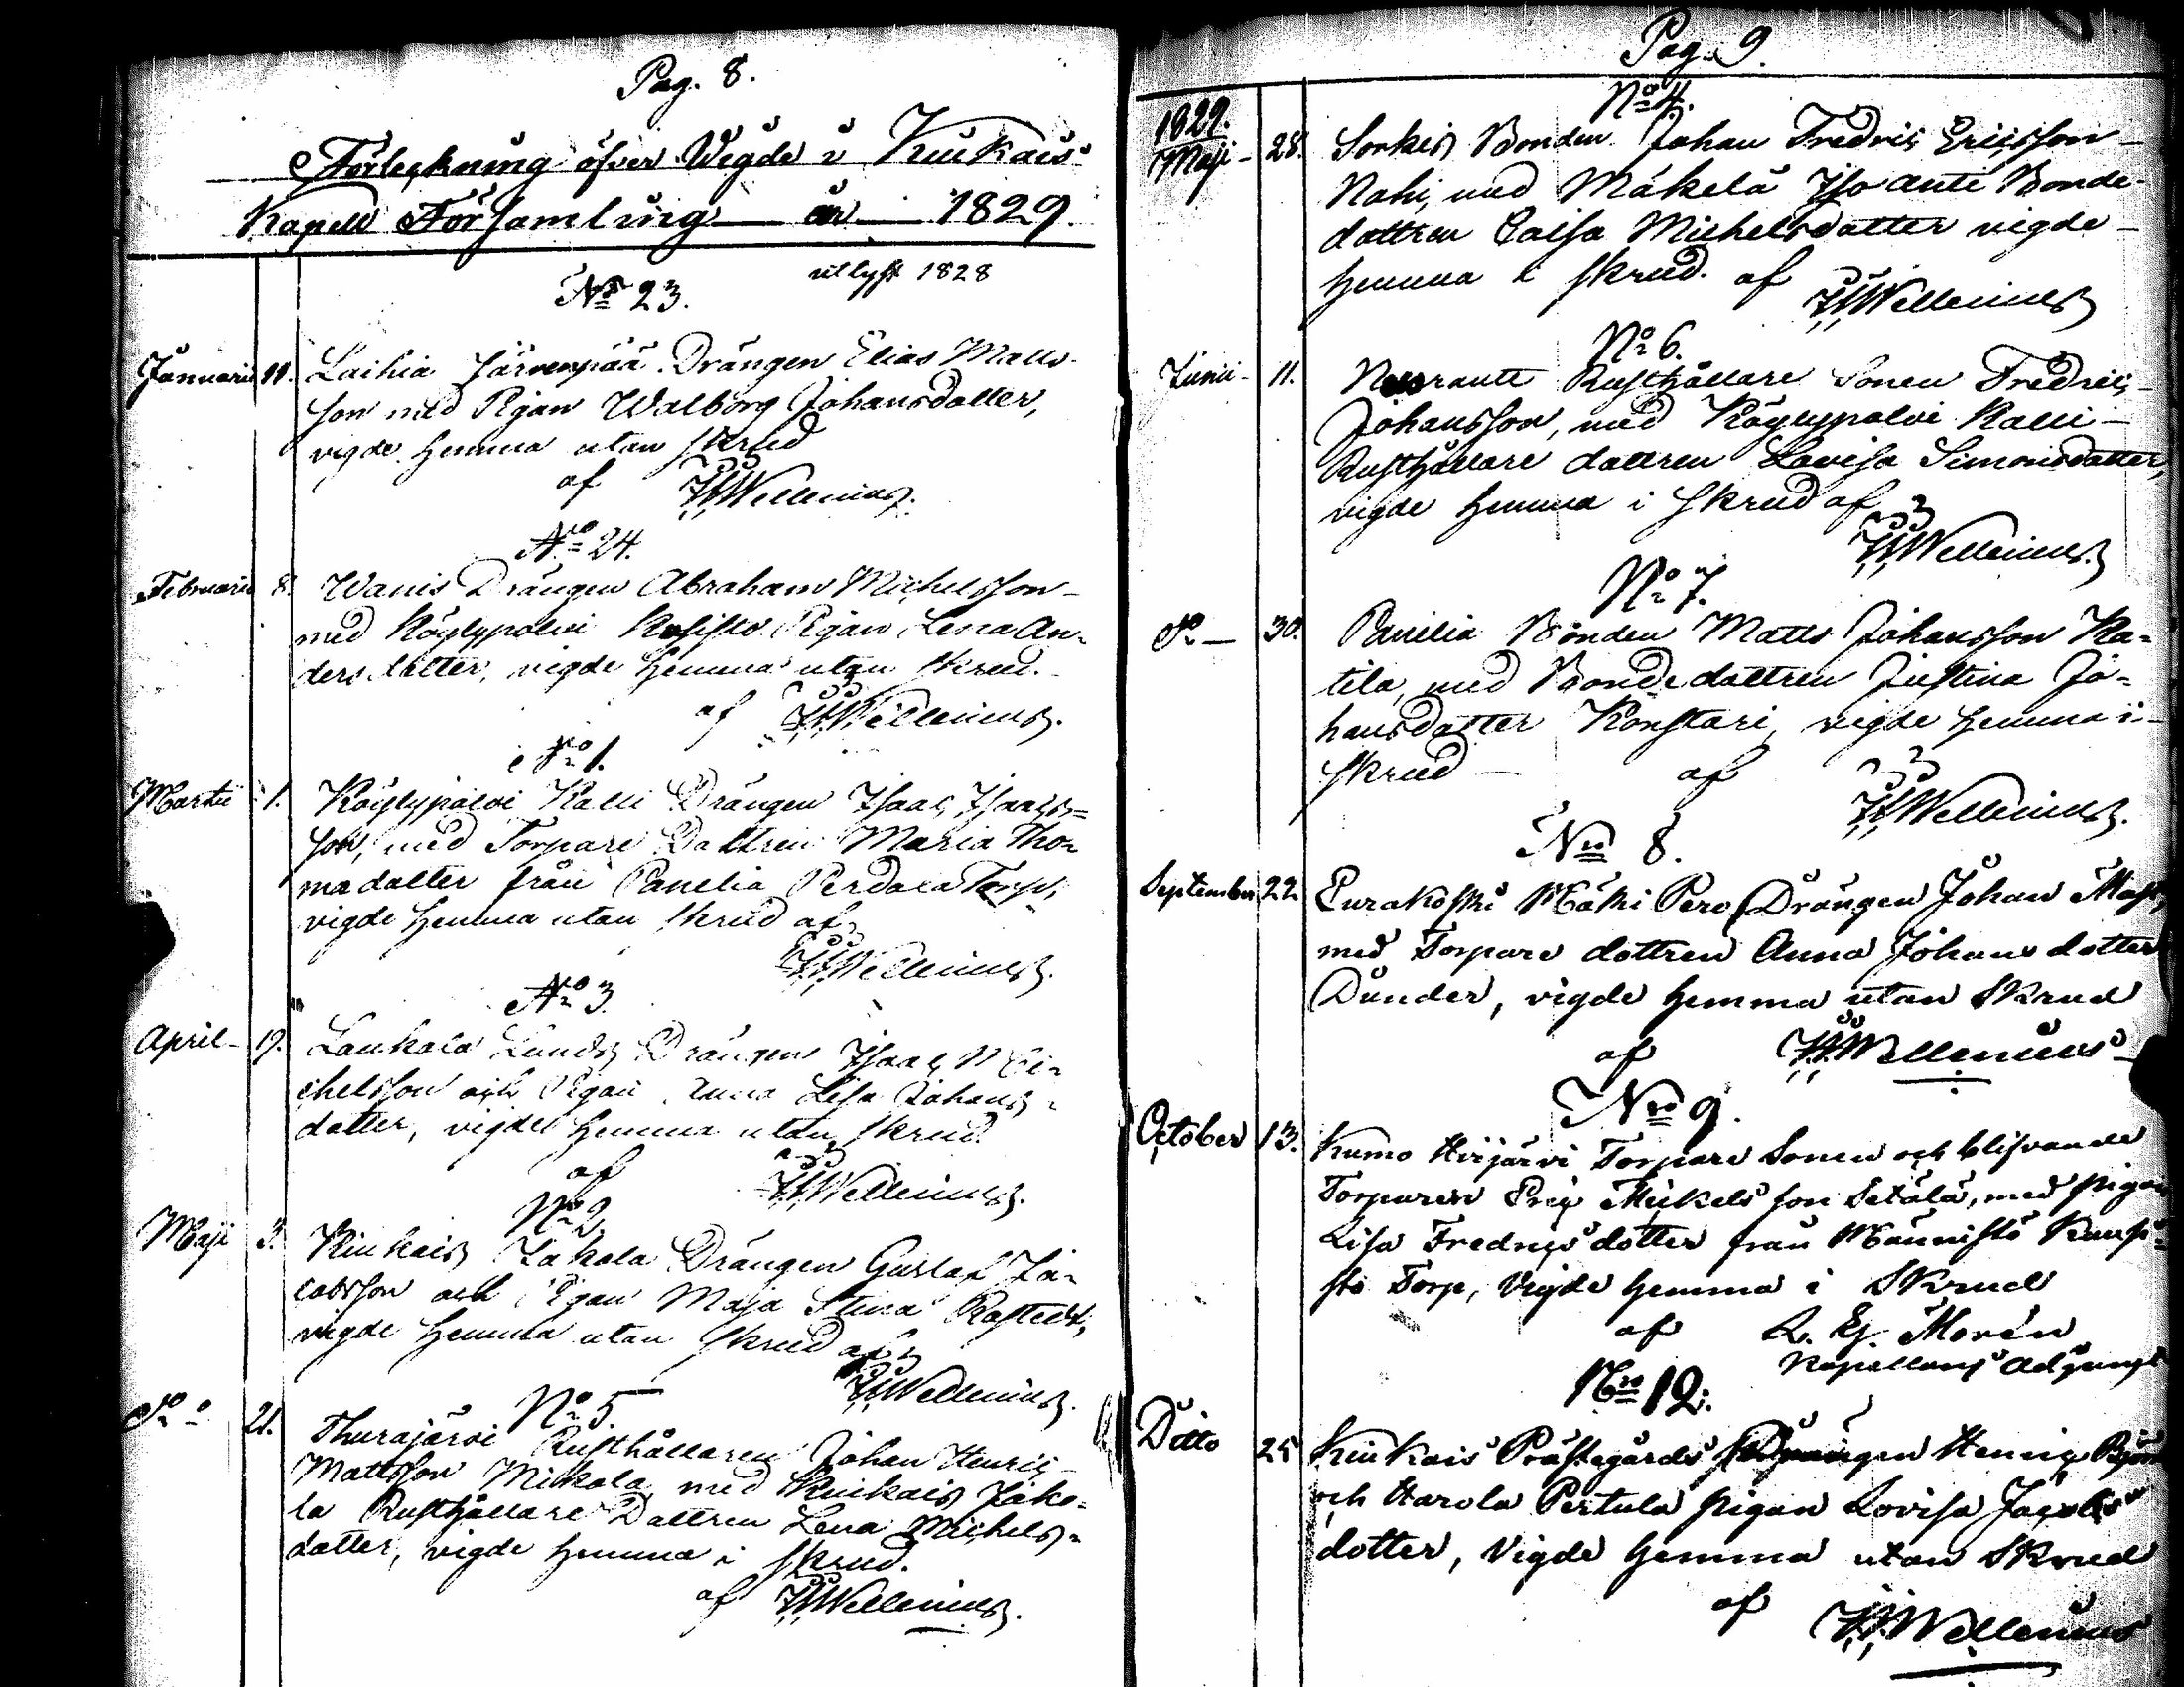 Pag. 8.
Förteckning öfver Wigde i Kiukais
Kapell Församling år 1829.
utlyst 1828
No 23.
Januarii 11. Laihia Järvenpää Drängen Elias Matts-
son med Pigan Walborg Johansdotter,
vigde hemma utan skrud
af Wellenius.
No 24.
Februarii 8. Wanis Drängen Abraham Michelsson
med Köylypolvi Pigan Lena An-
dersdotter, vigde hemma utan skrud.
af Wellenius.
No 1.
Martii 1. Köylypolvi Kalli Drängen Isaac Isaacs-
son, med Torpare Dottren Maria Tho-
madotter från Panelia Perdala Torp,
vigde hemma utan skrud af
Wellenius.
No 3.
April 19. Laukola Lunds Drängen Isaac Mi-
chelsson och Pigan Anna Lisa Johans-
dotter, vigde hemma utan skrud.
af Wellenius.
No 2.
Maji 3. Kiukais Jakola Drängen Gustaf Ja-
cobsson och Pigan Maja Stina
vigde hemma utan skrud af
Wellenius.
No 5.
Do 21. Thurajärvi Rusthållaren Johan Henric
Mattsson Mickola med Kiukais Jako-
la Rusthållare Dottren Lena Michels-
dotter, vigde hemma i skrud.
af Wellenius.
Pag. 9.
No 4.
1829.
Maji 28. Sorkis Bonden Johan Fredric Ericsson
med Mäkelä Iso ante Bonde-
dottren Caisa Michelsdotter vigde
hemma i skrud. af Wellenius
No 6.
Junii 11. Rusthållare Sonen Fredric
Johansson, med Köylypolvi Kalli
Rusthållare dottren Lovisa Simonsdotter,
vigde hemma i skrud af
Wellenius.
No 7.
Do 30. Panelia Bonden Matts Johansson Ka-
tila, med Bondedottren Justina Jo-
hansdotter Konstari, vigde hemma i
skrud af
Wellenius.
No 8.
September 22 Eurakoski Mäki Pero Drängen Johan
med Torpare dottren Anna Johans dotter
Dunder, vigde hemma utan Skrud
af Wellenius
No 9.
October 13. Kumo Hirjärvi Torpare Sonen och blifvande
Torparen Eric Mickels son Setälä, med pigan
Lisa Fredrics dotter från Männistö
Torp, Vigde hemma i Skrud
af Morén
Kapellans Adjunct
No 12.
Ditto 25 Kiukais Prästegårds Drängen Henric
och Harola Pertula pigan Lovisa Jacobs
dotter, Vigde hemma utan Skrud
af Wellenius